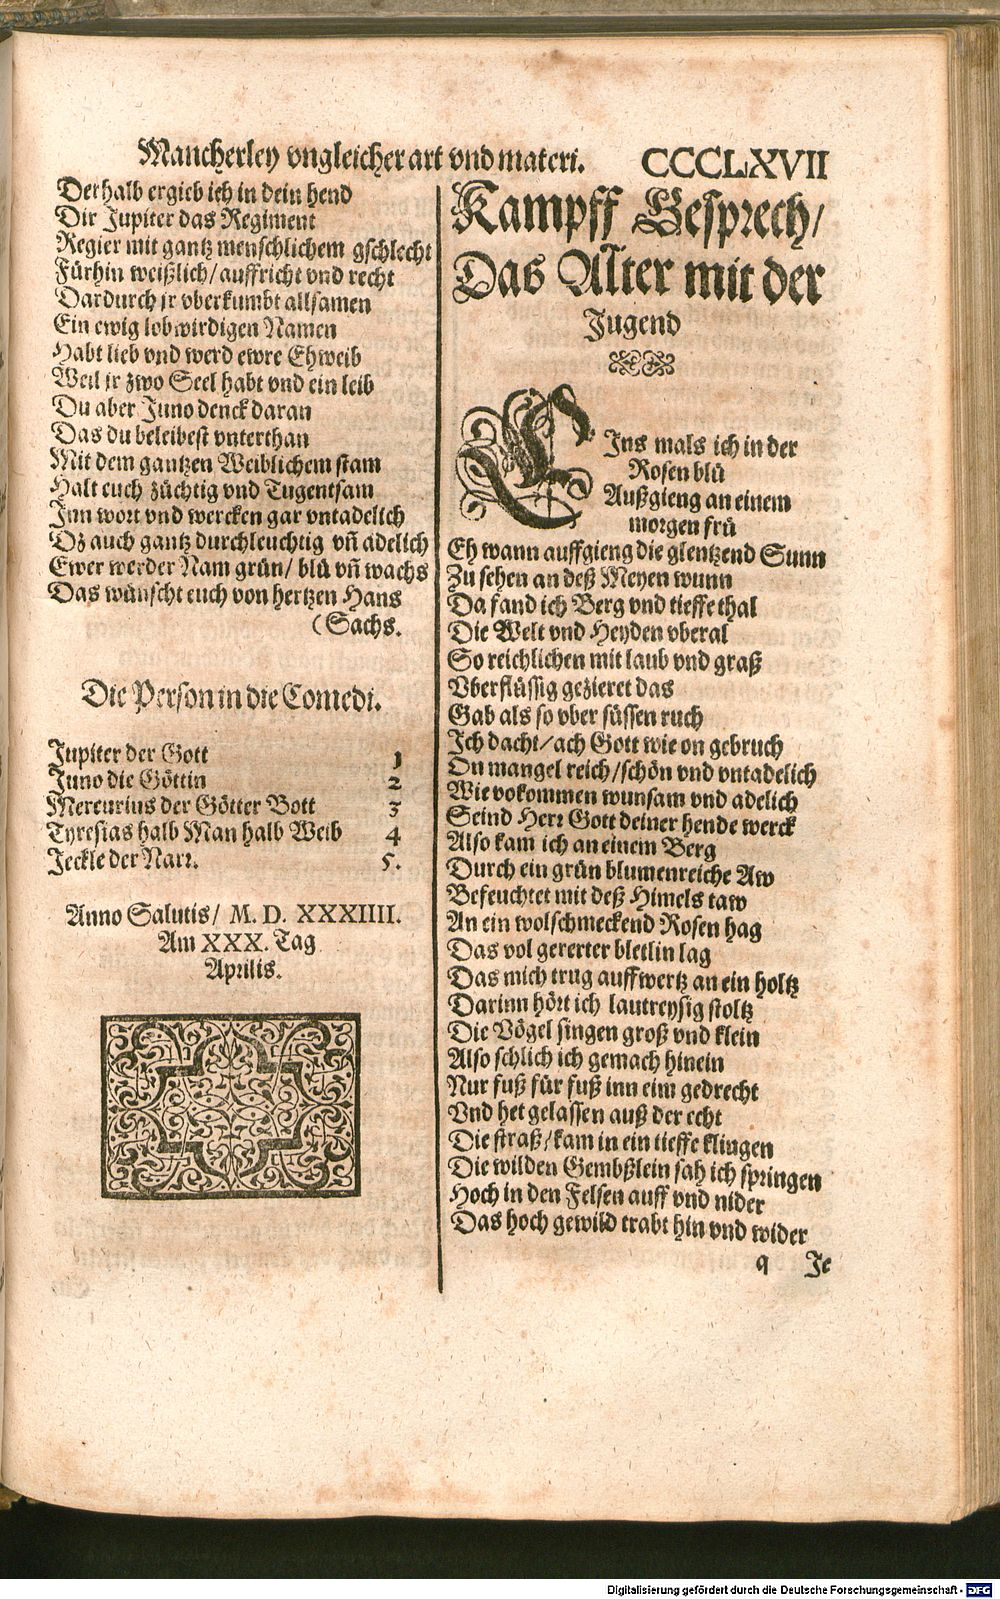 Mancherley vngleicher art vnd materi. CCCLXVII
Derhalb ergieb ich in dein hend
Dir Jupiter das Regiment
Regier mit gantz menschlichem gschlecht
Fürhin weißlich/ auffricht vnd recht
Dardurch jr vberkumbt allsamen
Ein ewig lobwirdigen Namen
Habt lieb vnd werd ewre Ehweib
Weil jr zwo Seel habt vnd ein leib
Du aber Juno denck daran
Das du beleibest vnterthan
Mit dem gantzen Weiblichem stam
Halt euch züchtig vnd Tugentsam
Inn wort vnd wercken gar vntadelich
Dz auch gantz durchleuchtig vñ adelich
Ewer werder Nam grün/ blü vñ wachs
Das wünscht euch von hertzen Hans
(Sachs.
Die Person in die Comedi.
Jupiter der Gott 1
Juno die Göttin 2
Mercurius der Götter Bott 3
Tyresias halb Man halb Weib 4
Jeckle der Narr. 5.
Anno Salutis/ M. D. XXXIIII.
Am XXX. Tag
Aprilis.
Kampff Gesprech/
Das Alter mit der
Jugend
EIns mals ich in der
Rosen blü
Außgieng an einem
morgen frü
Eh wann auffgieng die glentzend Sunn
Zu sehen an deß Meyen wunn
Da fand ich Berg vnd tieffe thal
Die Welt vnd Heyden vberal
So reichlichen mit laub vnd graß
Vberflüssig gezieret das
Gab als so vber süssen ruch
Ich dacht/ ach Gott wie on gebruch
On mangel reich/ schön vnd vntadelich
Wie vokommen wunsam vnd adelich
Seind Herr Gott deiner hende werck
Also kam ich an einem Berg
Durch ein grün blumenreiche Aw
Befeuchtet mit deß Himels taw
An ein wolschmeckend Rosen hag
Das vol gererter bletlin lag
Das mich trug auffwertz an ein holtz
Darinn hört ich lautreysig stoltz
Die Vögel singen groß vnd klein
Also schlich ich gemach hinein
Nur fuß für fuß inn eim gedrecht
Vnd het gelassen auß der echt
Die straß/ kam in ein tieffe klingen
Die wilden Gembßlein sah ich springen
Hoch in den Felsen auff vnd nider
Das hoch gewild trabt hin vnd wider
q Je
Digitalisierung gefördert durch die Deutsche Forschungsgemeinschaft - DFG